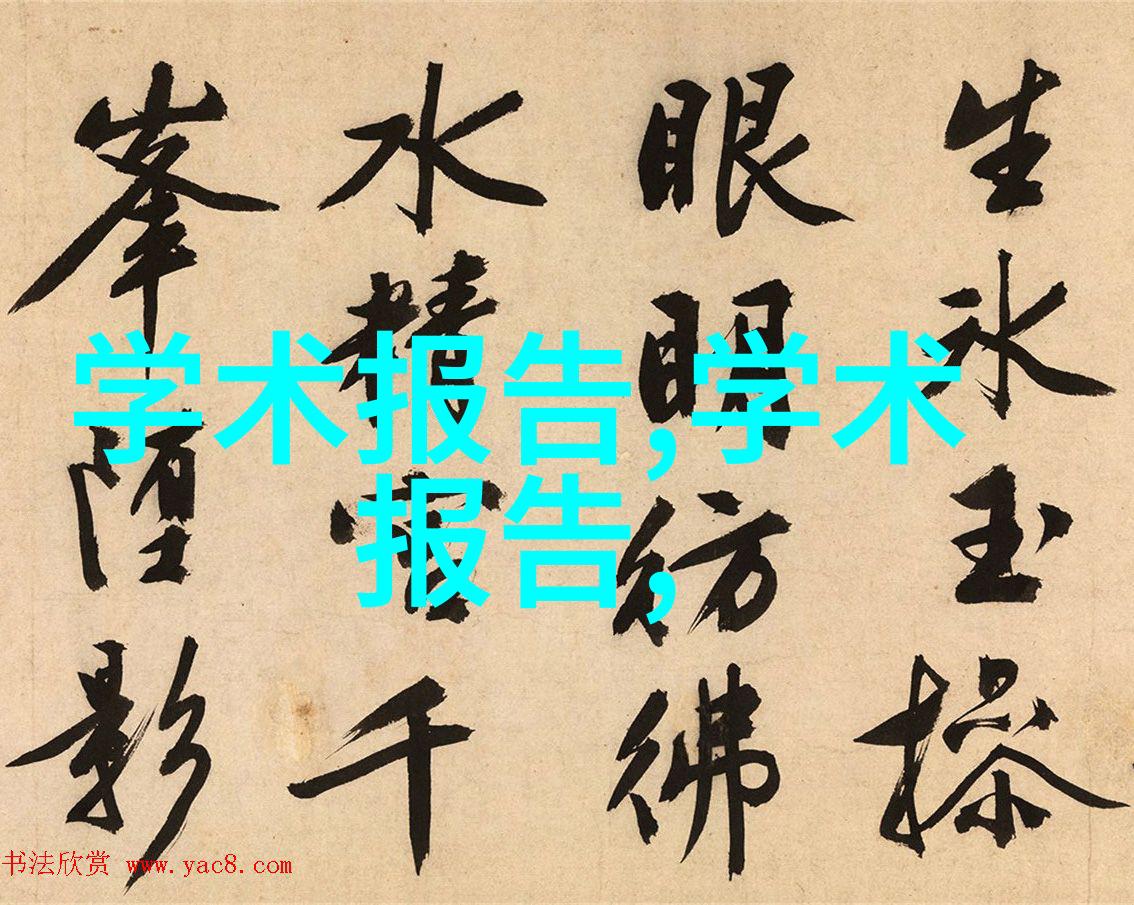 学术报告,学术
报告,
生冰玉操
眼明彷彿
水精宫千
峯堕影
书法欣赏 www.yac8.com